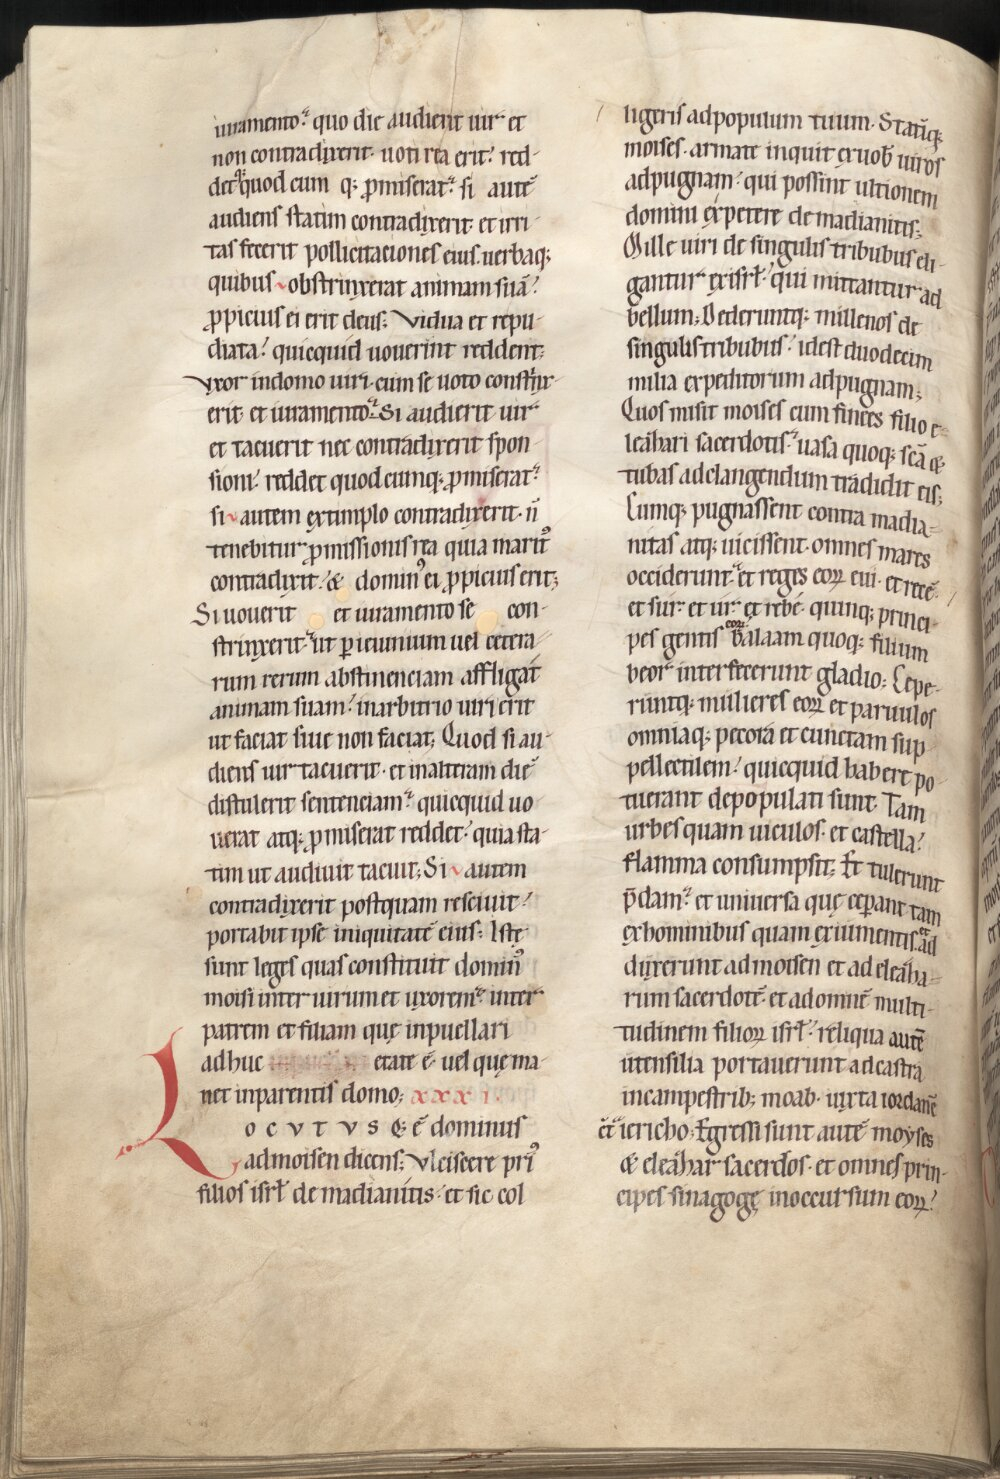 iuramento· quo die audient uir et
non contradixerit· uoti rea erit· red-
det quod cum q; ꝓmiserat· si autē
audiens statim contradixerit· et irri-
tas fecerit pollicitaciones eius· uerbaq;
quibus obstrinxerat animam suā·
ꝓpicius ei erit deus; Vidua et repu-
diata· quicquid uouerint reddent;
Vxor in domo uiri· cum se uoto constrinx-
erit· et iuramento· Si audierit uir
et tacuerit nec contradixerit spon-
sioni· reddet quodcumq; ꝓmiserat·
si autem extimplo contradixerit· n̄
tenebitur ꝓmissionis rea quia marit᷒
contradixit· & domin᷒ ei ꝓpicius erit;
Si uouerit et iuramento se con-
strinxerit· ut ꝑ ieiunium uel cetera-
rum rerum abstinenciam affligat
animam suam· in arbitrio uiri erit
ut faciat siue non faciat; Quod si au-
diens uir tacuerit· et in alteram diē
distulerit sentenciam· quicquid uo-
uerat atq; ꝓmiserat reddet· quia sta-
tim ut audiuit tacuit; Si autem
contradixerit postquam resciuit·
portabit ipse iniquitatē eius; Istę
sunt leges quas constituit domin᷒
moisi inter uirum et uxorem· inter
patrem et filiam quę in puellari
adhuc etate ē· uel quę ma-
net in parentis domo; xxxi·
Locutusq; ē dominus
ad moisen dicens; Vlciscere pri᷒
filios isrł de madianitis· et sic col-
ligeris ad populum tuum· Statīq;
moises· armate inquit ex uob̄ uiros
ad pugnam· qui possint ultionem
domini expetere de madianitis;
Mille uiri de singulis tribubus eli-
gantur ex isrł· qui mittantur ad
bellum; Dederuntq; millenos de
singulis tribubus· id est duodecim
milia expeditorum ad pugnam;
Quos misit moises cum finees filio e-
leahari sacerdotis· uasa quoq; sc̄a &
tubas ad clangendum tradidit eis;
Cumq; pugnassent contra madia-
nitas atq; uicissent· omnes mares
occiderunt· et reges eoꝝ eui· et recē·
et sur· et ur· et rebe· quinq; princi-
pes gentis eoꝝ balaam quoq; filium
beor interfecerunt gladio; Cepe-
runtq; mulieres eoꝝ et paruulos
omniaq; pecora et cunctam sup-
pellectilem· quicquid habere po-
tuerant depopulati sunt· Tam
urbes quam uiculos· et castella·
flamma consumpsit; Et tulerunt
p̄dam· et uniuersa quę ceperant tam
ex hominibus quam ex iumentis· et ad-
duxerunt ad moisen et ad eleaha-
rum sacerdotē· et ad omnē multi-
tudinem filioꝝ isrł· reliqua autē
utensilia portauerunt ad castra
in campestrib; moab· iuxta iordanē
cͨtͣ iericho; Egressi sunt autē moyses
& eleahar sacerdos· et omnes prin-
cipes sinagogę in occursum eoꝝ·